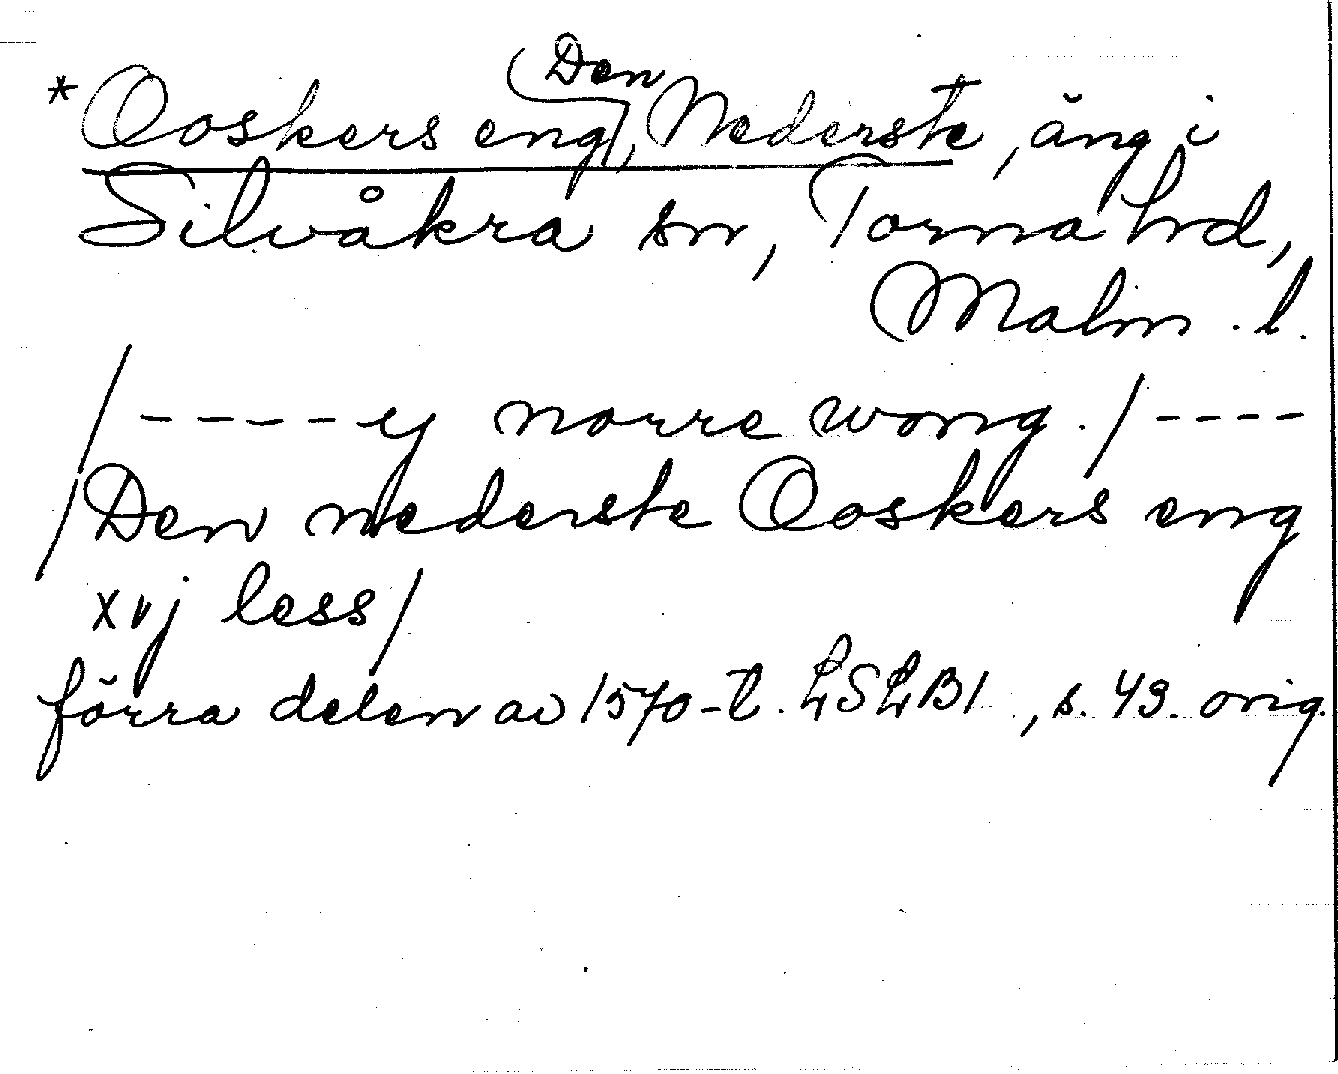 * Ooskers eng, Den Nederste, äng i
Silvåkra sn, Torna hd,
Malm. l.
/ - - - - ej norre wong. / - - - -
/ Den nederste Ooskers eng
xvj less /
förra delen av 1570-t. LSLB1, s. 43. orig.